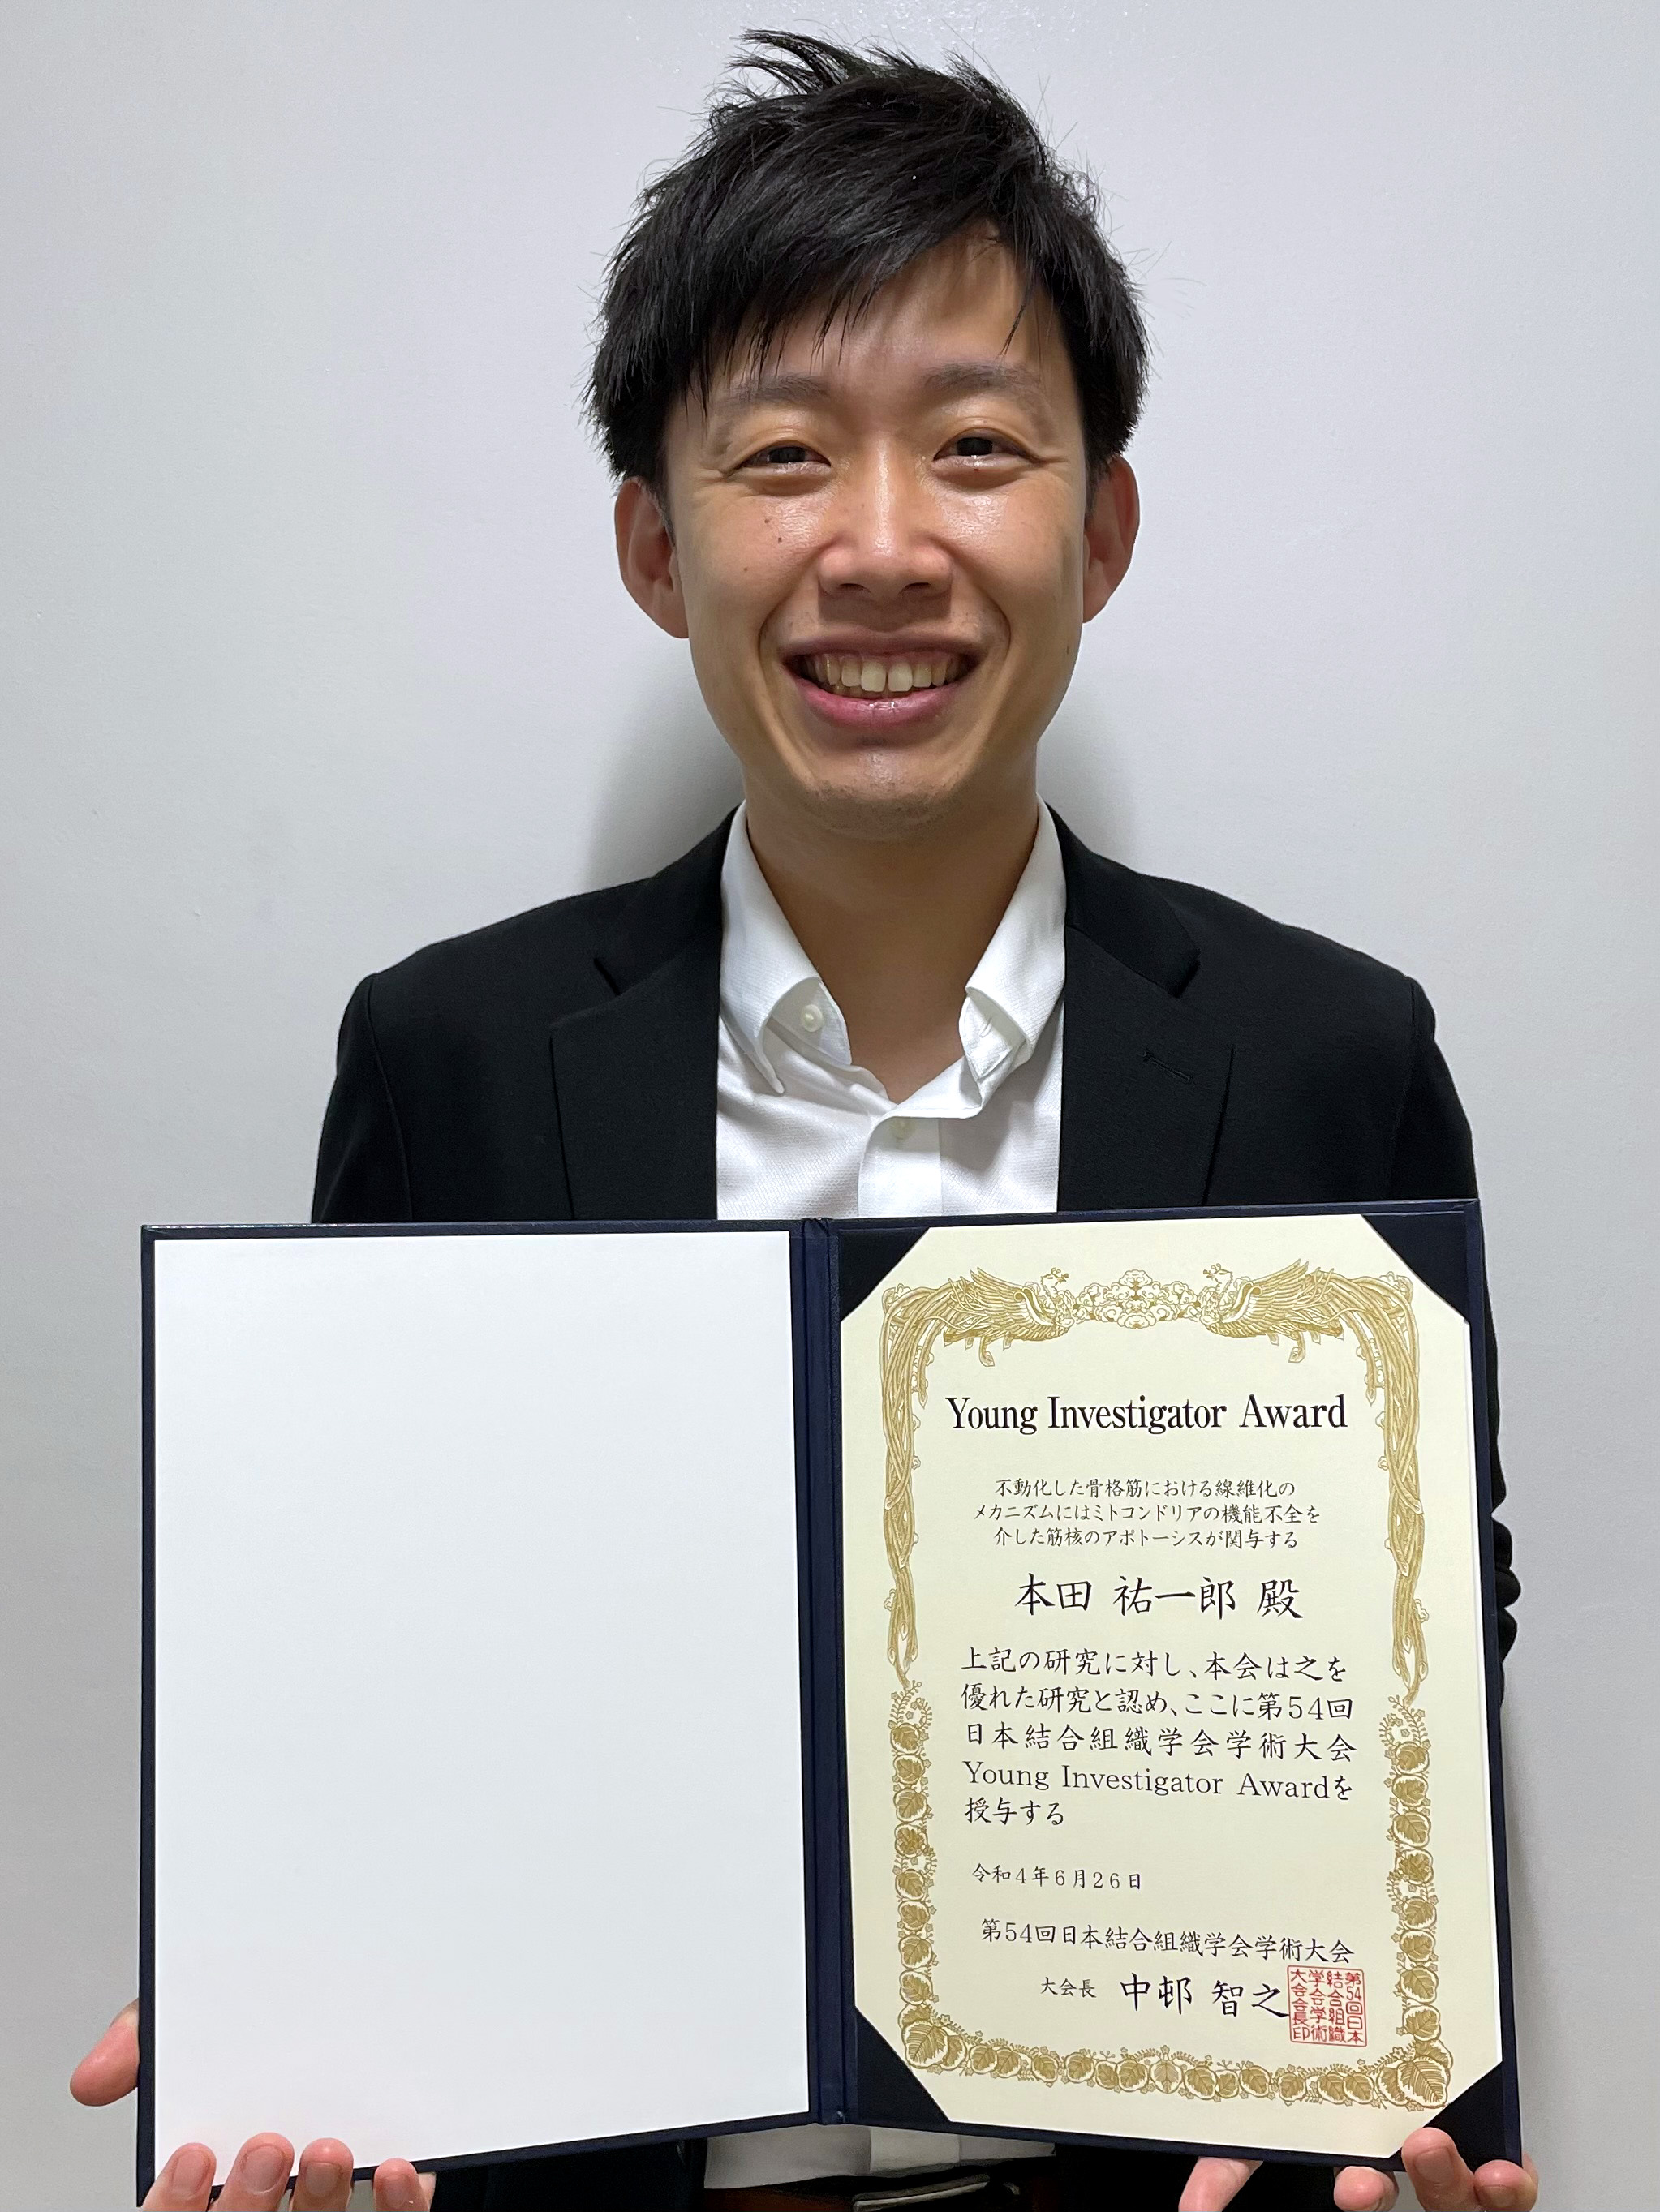 Young Investigator Award
不動化した骨格筋における線維化の
メカニズムにはミトコンドリアの機能不全を
介した筋核のアポトーシスが関与する
本田 祐一郎 殿
上記の研究に対し、本会は之を
優れた研究と認め、ここに第54回
日本結合組織学会学術大会
Young Investigator Awardを
授与する
令和4年6月26日
第54回日本結合組織学会学術大会
大会長 中邨 智之
第54回日本
結合組織
学会学術
大会会長印